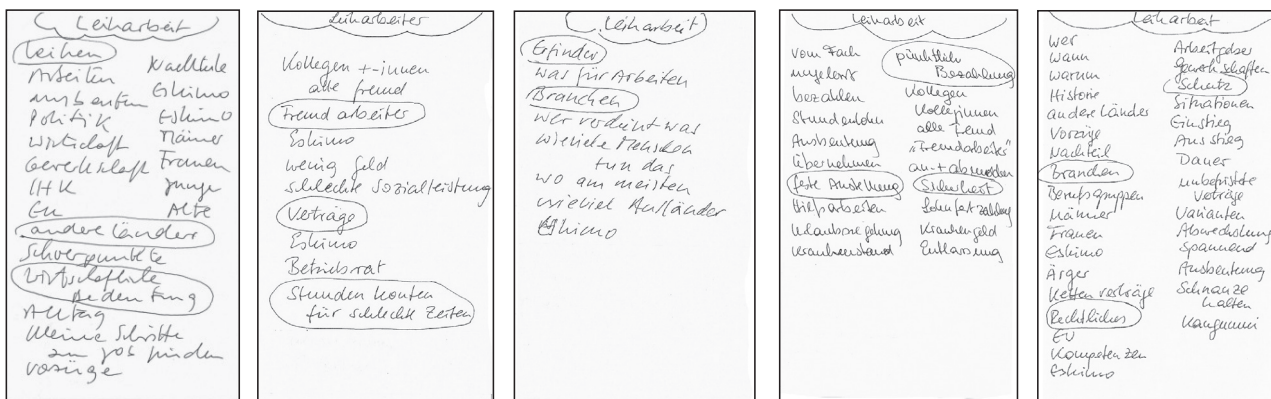 Leiharbeit
Leihen
Arbeiten
ausbeuten
Politik
Wirtschaft
Gewerkschaft
IHK
EU
andere Länder
Schwerpunkte
Wirtschaftliche
Bedeutung
Alltag
kleine Schritte
zum Job finden
Vorzüge
Nachteile
Eskimo
Eskimo
Männer
Frauen
Junge
Alte
Leiharbeiter
Kollegen +-innen
alle fremd
Fremdarbeiter
Eskimo
wenig Geld
schlechte Sozialleistung
Verträge
Eskimo
Betriebsrat
Stundenkonten
für schlechte Zeiten
Leiharbeit
Erfinder
was für Arbeiten
Branchen
wer verdient was
wieviele Menschen
tun das
wo am meisten
wieviel Ausländer
Eskimo
Leiharbeit
vom Fach
ungelernt
bezahlen
Stundenlohn
Ausbeutung
übernehmen
feste Anstellung
Hilfsarbeiten
Urlaubsregelung
Krankenstand
pünktlich
Bezahlung
Kollegen
Kolleginnen
alle fremd
"Fremdarbeiter"
an-+abmelden
Sicherheit
Lohnfortzahlung
Krankengeld
Entlassung
Leiharbeit
wer
wann
warum
Historie
andere Länder
Vorzüge
Nachteil
Branchen
Berufsgruppen
Männer
Frauen
Eskimo
Ärger
Kettenverträge
Rechtliches
EU
Kompetenzen
Eskimo
Arbeitgeber
Gewerkschaften
Schutz
Situationen
Einstieg
Ausstieg
Dauer
unbefristete
Verträge
Varianten
Abwechslung
spannend
Ausbeutung
Schnauze
halten
Kaugummi